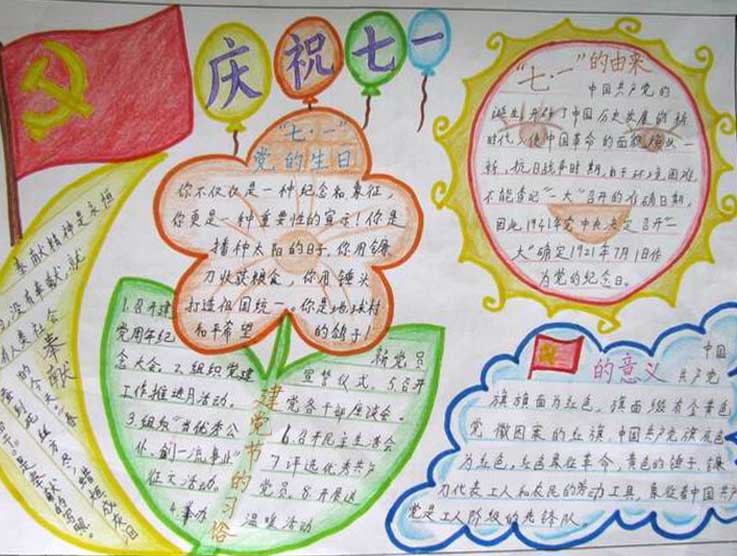 庆祝七一
"七·一"
党的生日
你不仅仅是一种纪念和象征,
你更是一种重要性的宣示!你是
播种太阳的日子,你用镰
刀收获粮食,你用锤头
打造祖国统一。你是地球村
和平希望的鸽子!
"七·一"的由来
中国共产党的
诞生开辟了中国历史发展的新
时代,使中国革命的面貌焕然一
新,抗日战争时期,由于环境困难
不能查记"一大"召开的准确日期,
因此1941年党中央决定召开"一
大"确定1921年7月1日作
为党的纪念日。
奉献精神是永恒
没有奉献,就
有人类社会
的今天。"春
蚕到死丝方尽,蜡炬成灰泪
是奉献的写照。
奉献
1.召开建
党周年纪
念大会。2.组织党建
工作推进月活动。
3.组织"当优秀公
仆,创一流事业"
征文活动。
4.举办
新党员
宣誓仪式。5.召开
党各干部座谈会。
6.召开民主生活会
7.评选优秀共产
党员。8.开展送
温暖活动
建党节的习俗
的意义
中国
共产党
旗旗面为红色,旗面缀有金黄色
党徽图案的红旗。中国共产党旗底色
为红色。红色象征革命,黄色的锤子、镰
刀代表工人和农民的劳动工具,象征着中国共产
党是工人阶级的先锋队。